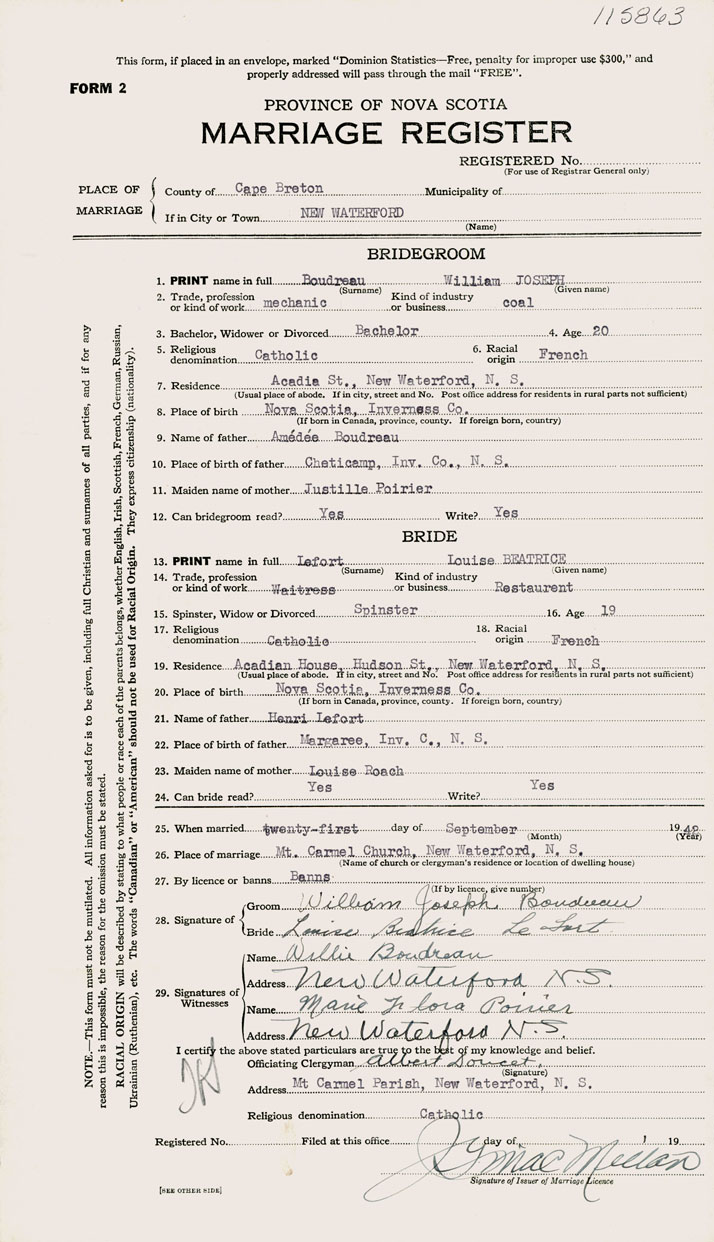 115863
This form, if placed in an envelope, marked "Dominion Statistics—Free, penalty for improper use $300," and
properly addressed will pass through the mail "FREE".
FORM 2
PROVINCE OF NOVA SCOTIA
MARRIAGE REGISTER
REGISTERED No.
(For use of Registrar General only)
PLACE OF MARRIAGE
County of Cape Breton Municipality of
If in City or Town NEW WATERFORD
(Name)
BRIDEGROOM
1. PRINT name in full Boudreau William JOSEPH
(Surname) (Given name)
2. Trade, profession or kind of work mechanic Kind of industry or business coal
3. Bachelor, Widower or Divorced Bachelor 4. Age 20
5. Religious denomination Catholic 6. Racial origin French
7. Residence Acadia St., New Waterford, N. S.
(Usual place of abode. If in city, street and No. Post office address for residents in rural parts not sufficient)
8. Place of birth Nova Scotia, Inverness Co.
(If born in Canada, province, county. If foreign born, country)
9. Name of father Amédée Boudreau
10. Place of birth of father Cheticamp, Inv. Co., N. S.
11. Maiden name of mother Justille Poirier
12. Can bridegroom read? Yes Write? Yes
BRIDE
13. PRINT name in full Lefort Louise BEATRICE
(Surname) (Given name)
14. Trade, profession or kind of work Waitress Kind of industry or business Restaurent
15. Spinster, Widow or Divorced Spinster 16. Age 19
17. Religious denomination Catholic 18. Racial origin French
19. Residence Acadian House, Hudson St., New Waterford, N. S.
(Usual place of abode. If in city, street and No. Post office address for residents in rural parts not sufficient)
20. Place of birth Nova Scotia, Inverness Co.
(If born in Canada, province, county. If foreign born, country)
21. Name of father Henri Lefort
22. Place of birth of father Margaree, Inv. C., N. S.
23. Maiden name of mother Louise Roach
24. Can bride read? Yes Write? Yes
25. When married twenty-first day of September 1940
(Month) (Year)
26. Place of marriage Mt. Carmel Church, New Waterford, N. S.
(Name of church or clergyman's residence or location of dwelling house)
27. By licence or banns Banns
(If by licence, give number)
28. Signature of
Groom William Joseph Boudreau
Bride Louise Beatrice Le Fort
29. Signatures of Witnesses
Name Willie Boudreau
Address New Waterford N.S.
Name Marie Flora Poirier
Address New Waterford N.S.
I certify the above stated particulars are true to the best of my knowledge and belief.
Officiating Clergyman Albert Doucet,
(Signature)
Address Mt Carmel Parish, New Waterford, N. S.
Religious denomination Catholic
Registered No. Filed at this office day of 19
Signature of Issuer of Marriage Licence
[SEE OTHER SIDE]
NOTE.—This form must not be mutilated. All information asked for is to be given, including full Christian and surnames of all parties, and if for any
reason this is impossible, the reason for the omission must be stated.
RACIAL ORIGIN will be described by stating to what people or race each of the parents belongs, whether English, Irish, Scottish, French, German, Russian,
Ukrainian (Ruthenian), etc. The words "Canadian" or "American" should not be used for Racial Origin. They express citizenship (nationality).